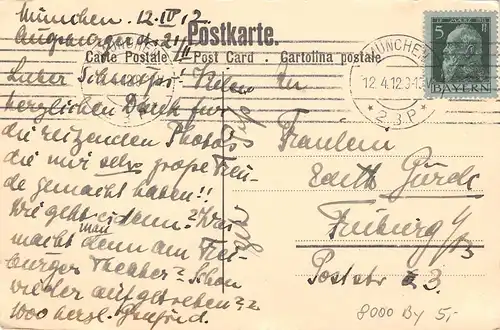 München. 12. IV 12
Augsburgerstr. 21/II
Postkarte.
Carte Postale Post Card . Cartolina postale
5
BAYERN
MÜNCHEN
12 4.12.
* 2.B.P *
Lieber
herzlichen Dank für
die reizenden Photos
die mir sehr große Freu-
de gemacht haben!!
Wie geht es denn? Was
macht man denn am Frei-
burger Theater? Schon
wieder aufgetreten??
1000 herzl.
Fräulein
Edith
Freiburg i/B
Poststr 3.
8000 By 5,-